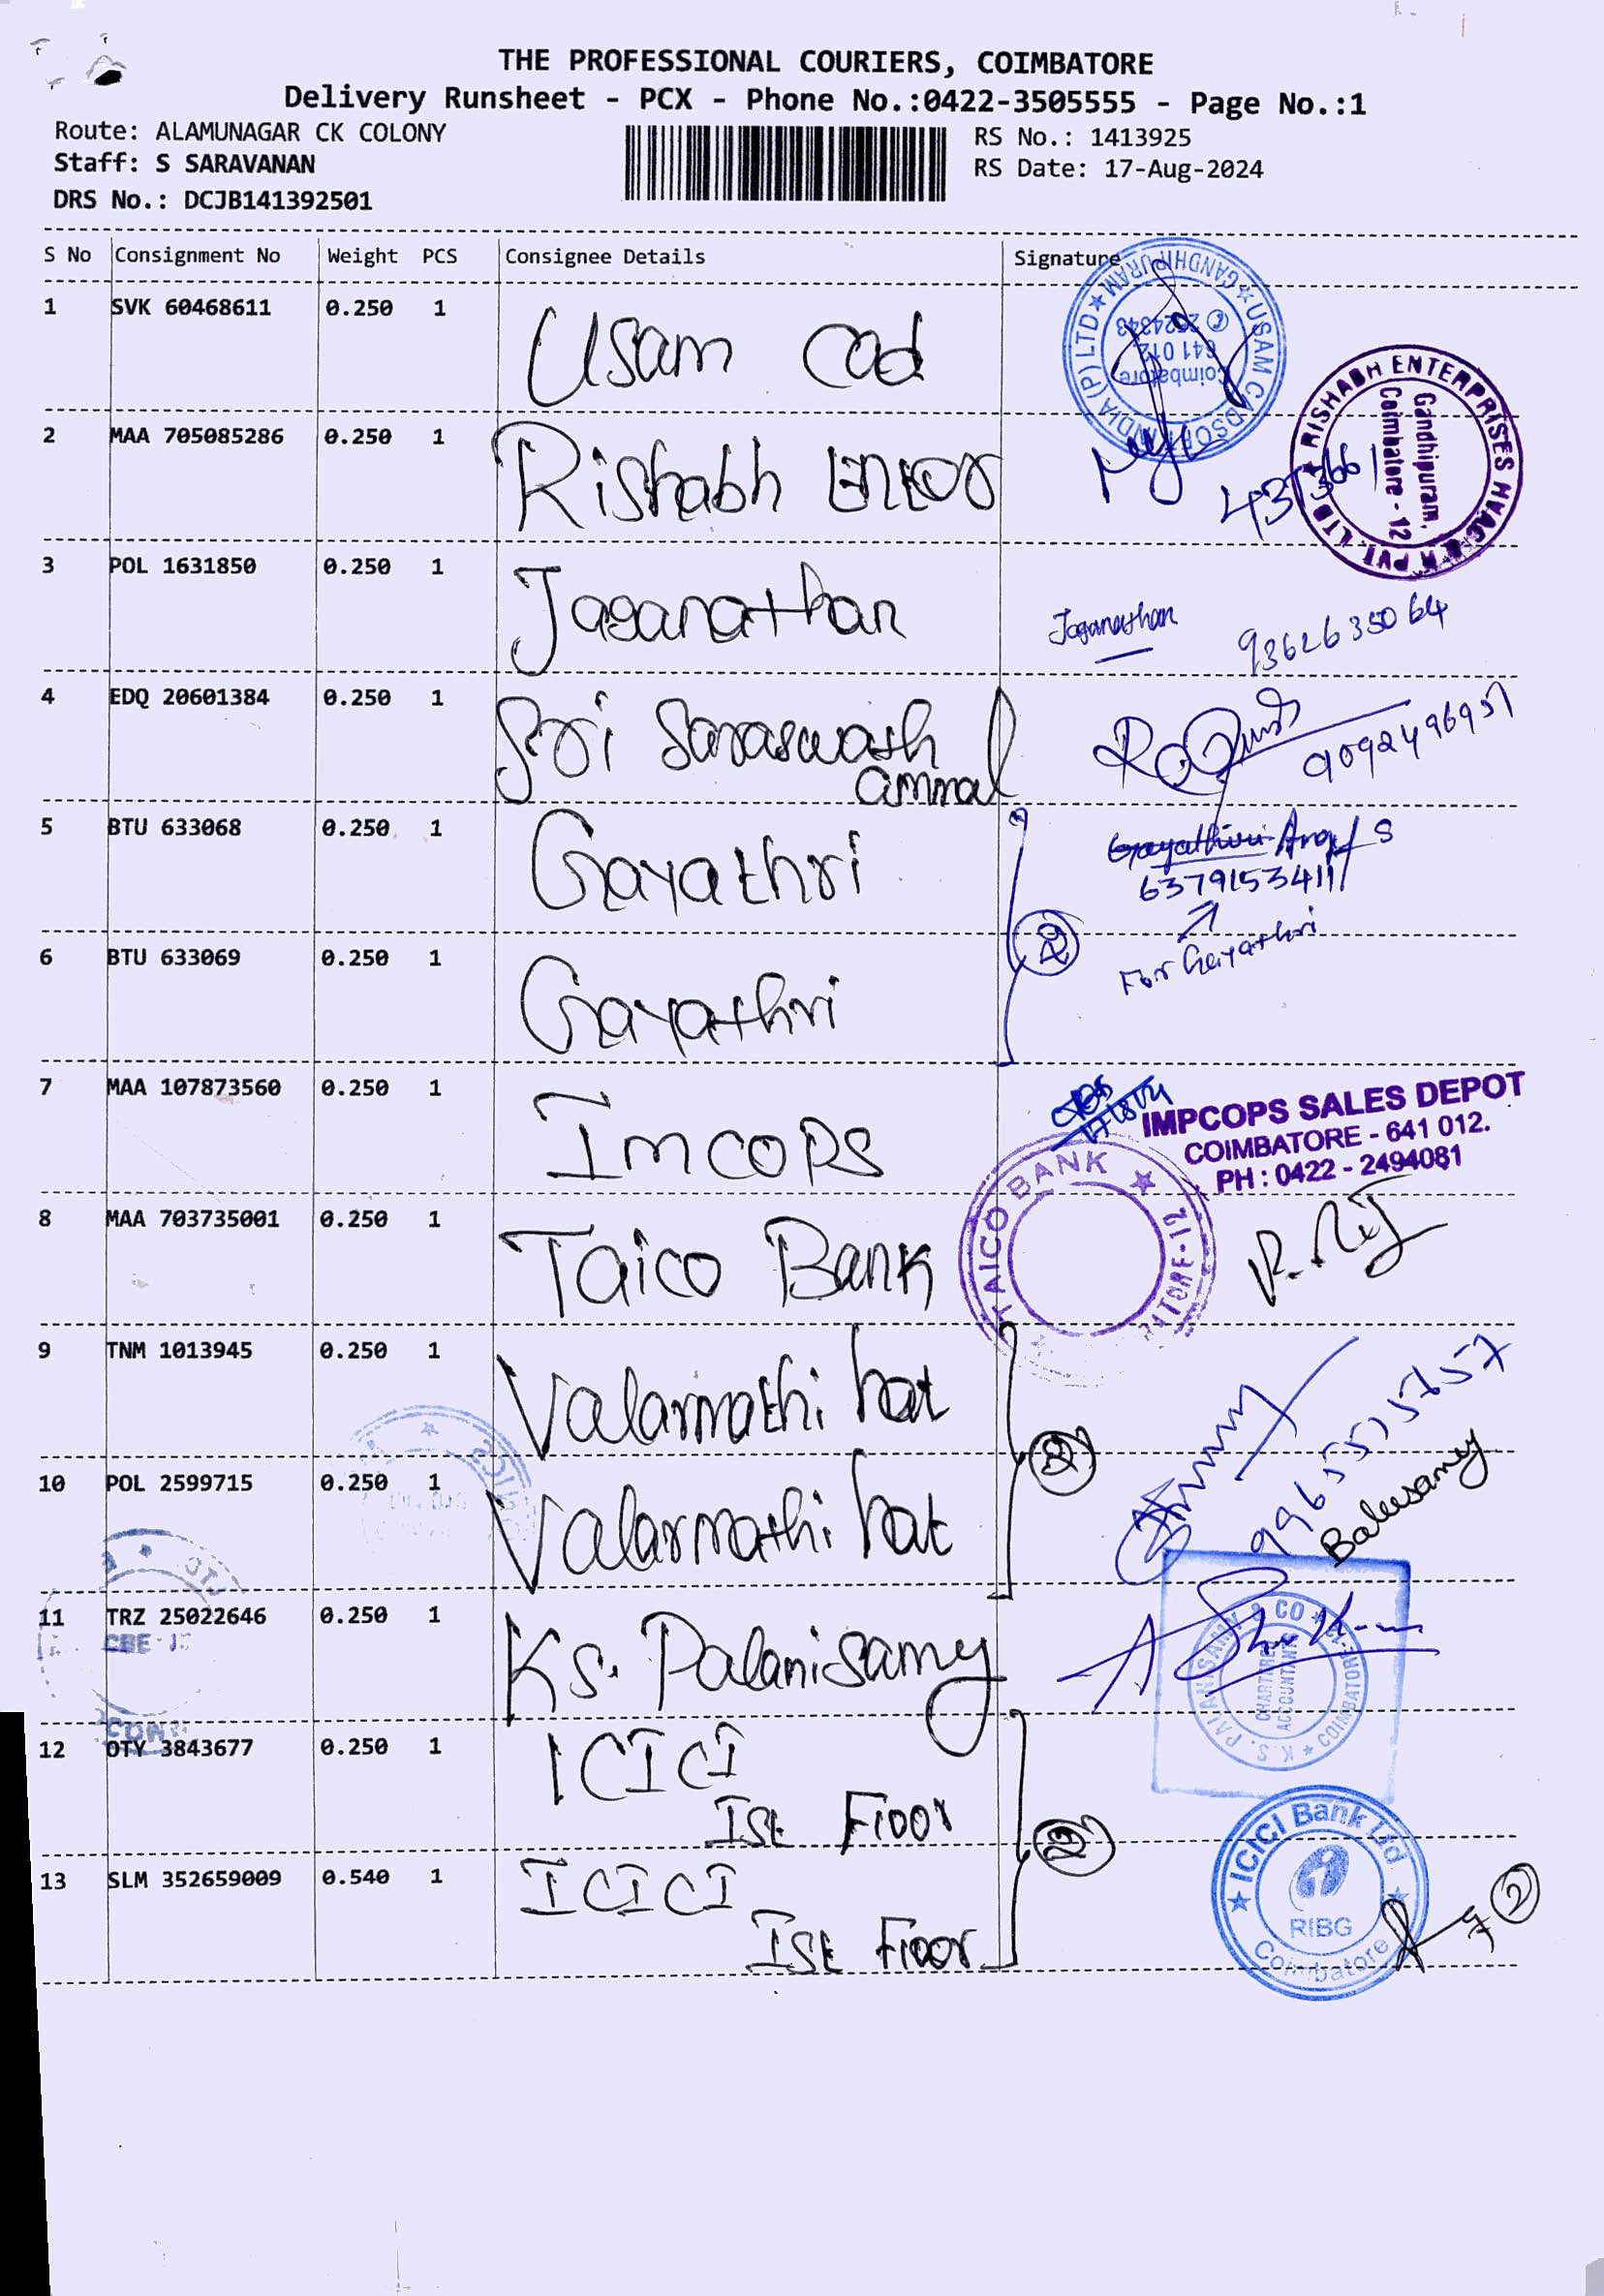 THE PROFESSIONAL COURIERS, COIMBATORE
Delivery Runsheet - PCX - Phone No.:0422-3505555 - Page No.:1
Route: ALAMUNAGAR CK COLONY
Staff: S SARAVANAN
DRS No.: DCJB141392501
RS No.: 1413925
RS Date: 17-Aug-2024
S No Consignment No Weight PCS Consignee Details Signature
1 SVK 60468611 0.250 1 Usam Cad
USAM CADSOFT INDIA (P) LTD ★ GANDHIPURAM ★
Coimbatore
641 012
2 MAA 705085286 0.250 1 Rishabh Enter
RISHABH ENTERPRISES PVT. LTD
Gandhipuram,
Coimbatore - 12
3 POL 1631850 0.250 1 Jaganathan
Jaganathan
9362635064
4 EDQ 20601384 0.250 1 Sri Saraswathi
ammal
9092496951
5 BTU 633068 0.250 1 Gayathri
6379153411
For Gayathri
2
6 BTU 633069 0.250 1 Gayathri
7 MAA 107873560 0.250 1 Imcops
IMPCOPS SALES DEPOT
COIMBATORE - 641 012.
PH : 0422 - 2494081
8 MAA 703735001 0.250 1 Taico Bank
TAICO BANK ★
9 TNM 1013945 0.250 1 Valarmathi hat
2
10 POL 2599715 0.250 1 Valarmathi hat
Balusamy
11 TRZ 25022646 0.250 1 Ks. Palanisamy
K.S. PALANISAMY & CO ★ COIMBATORE-12 ★
CHARTERED
ACCOUNTANT
12 OTY 3843677 0.250 1 ICICI
Ist Floor
2
13 SLM 352659009 0.540 1 ICICI
Ist Floor
★ ICICI Bank Ltd ★
RIBG
Coimbatore
2